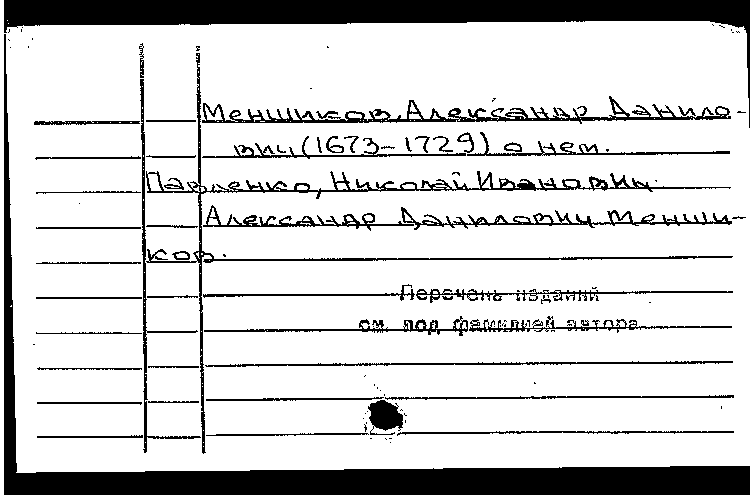 Меншиков, Александр Данило-
вич (1673-1729) о нем.
Павленко, Николай Иванович.
Александр Данилович Менши-
ков.
Перечень изданий
см. под фамилией автора